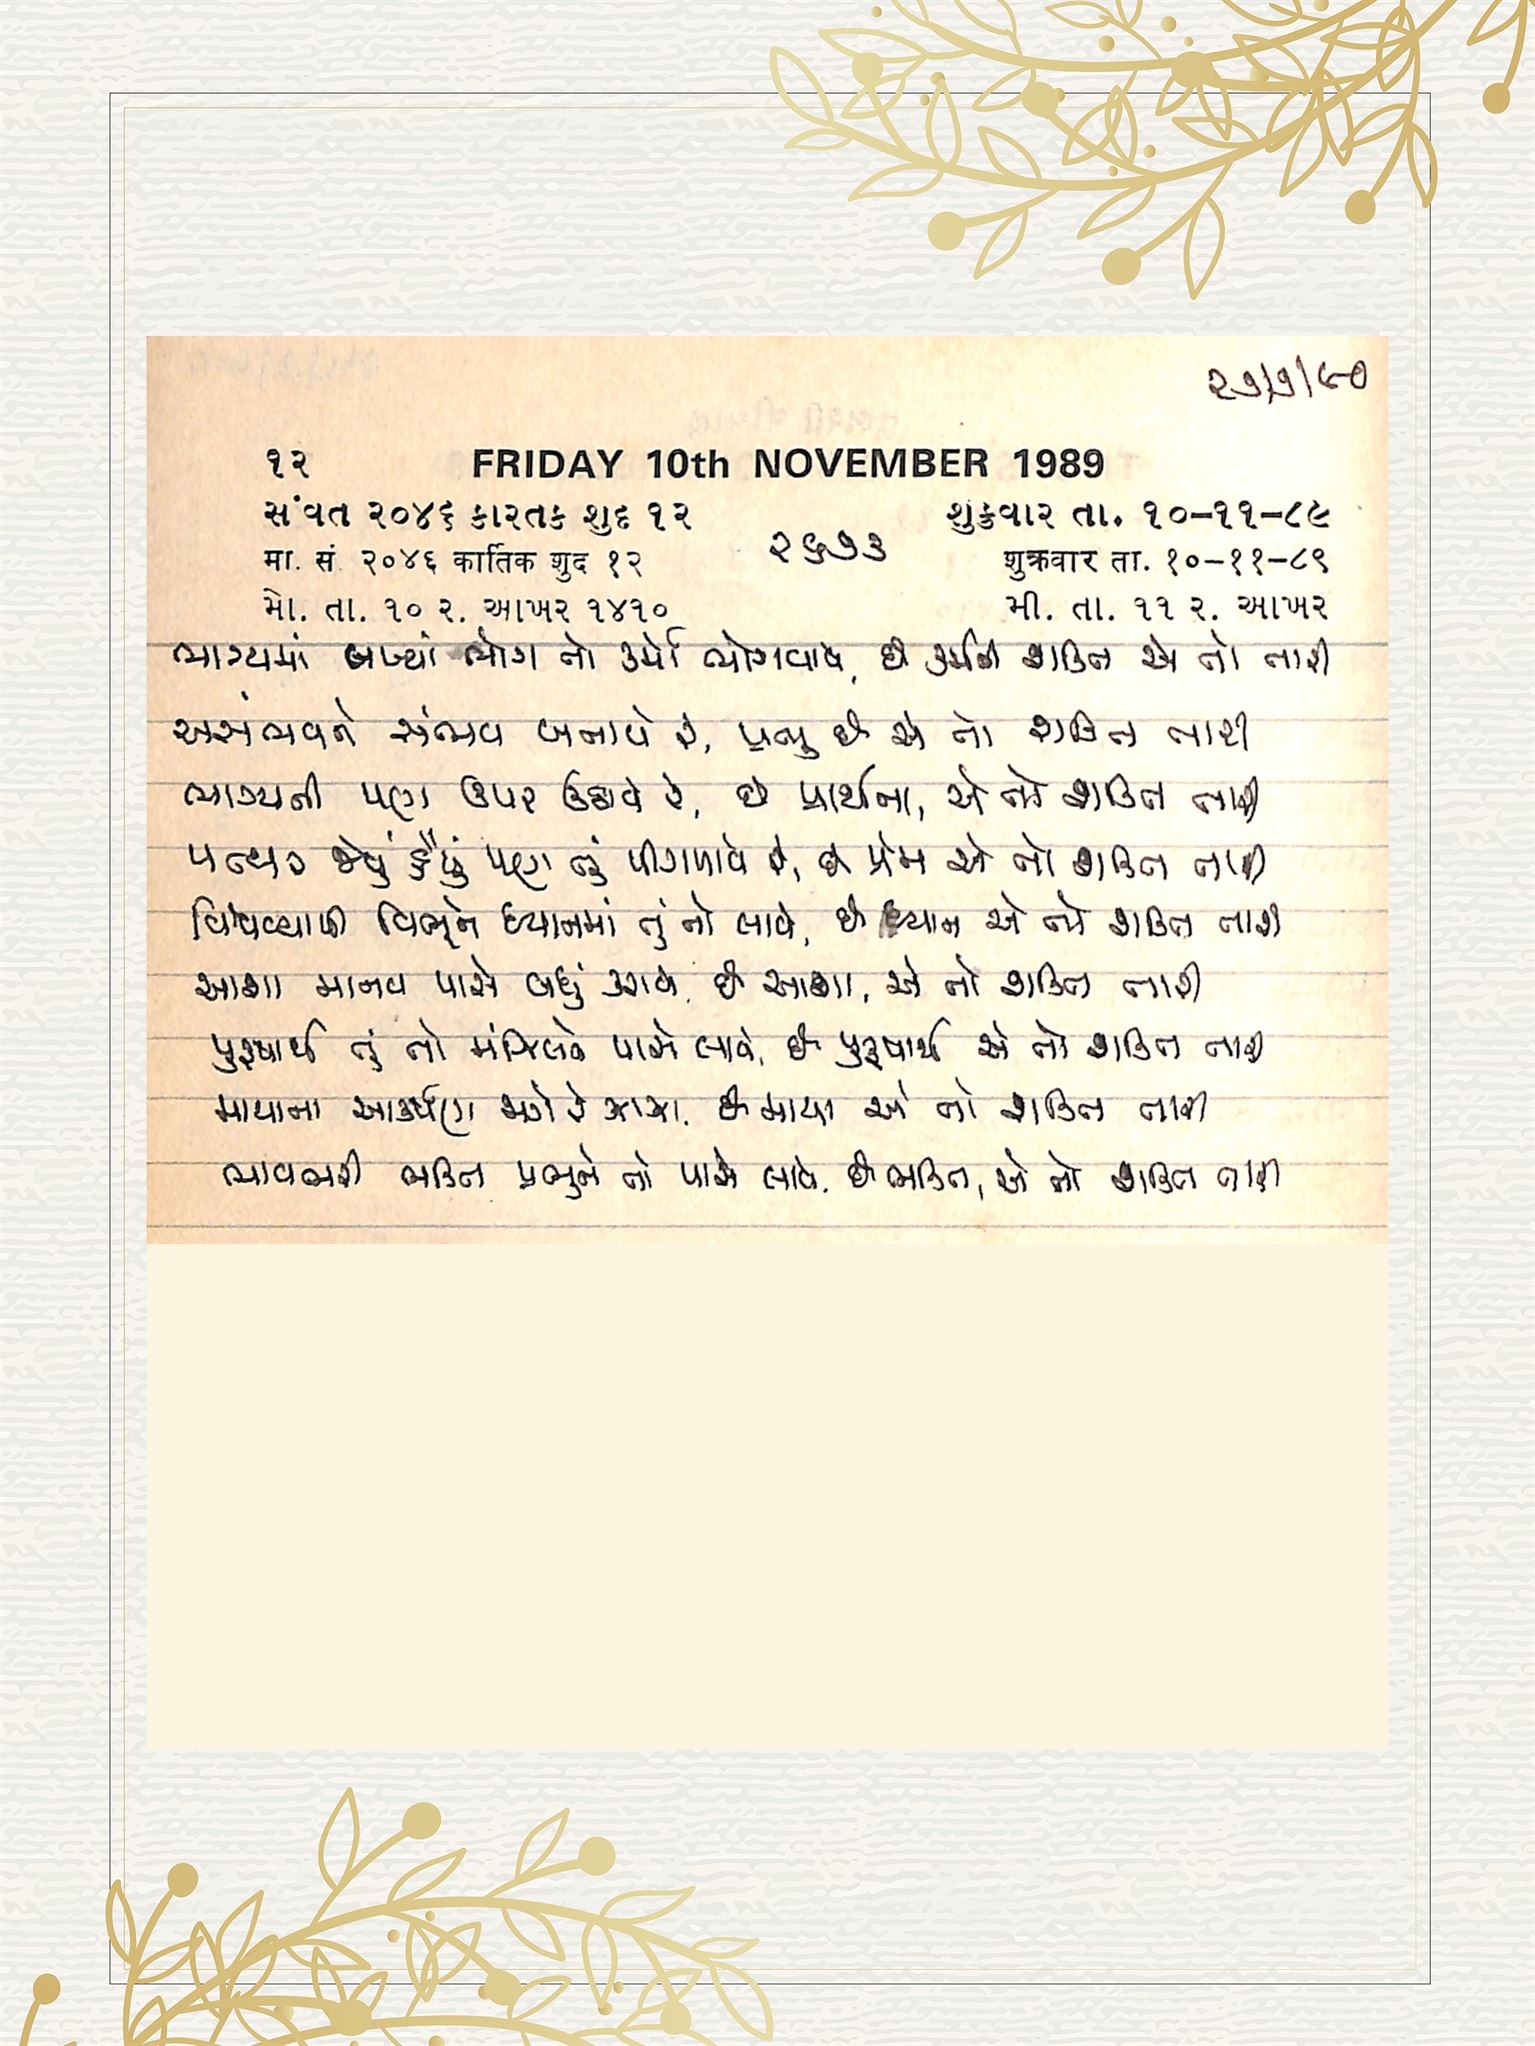 ૨૭/૭/૯૦
૧૨ FRIDAY 10th NOVEMBER 1989
સંવત ૨૦૪૬ કારતક શુદ ૧૨ શુક્રવાર તા. ૧૦-૧૧-૮૯
मा. सं. २०४६ कार्तिक शुद १२ शुक्रवार ता. १०-११-८९
૨૬૭૩
મો. તા. ૧૦ ર. આખર ૧૪૧૦ મી. તા. ૧૧ ર. આખર
ભાગ્યમાં લખ્યાં ભોગ તો કર્મો ભોગવાવે, છે કર્મની શક્તિ એ તો તારી
અસંભવને સંભવ બનાવે રે, પ્રભુ છે એ તો શક્તિ તારી
ભાગ્યની પણ ઉપર ઉઠાવે રે, છે પ્રાર્થના, એ તો શક્તિ તારી
પત્થર જેવું હૈયું પણ તું પીગળાવે રે, છે પ્રેમ એ તો શક્તિ તારી
વિશ્વવ્યાપી વિભુને ધ્યાનમાં તું તો લાવે, છે ધ્યાન એ તો શક્તિ તારી
આશા માનવ પાસે બધું કરાવે, છે આશા, એ તો શક્તિ તારી
પુરુષાર્થ તું તો મંઝિલને પાસે લાવે, છે પુરુષાર્થ એ તો શક્તિ તારી
માયાના આકર્ષણ જાગે રે ઝાઝા, છે માયા એ તો શક્તિ તારી
ભાવભરી ભક્તિ પ્રભુને તો પાસે લાવે, છે ભક્તિ, એ તો શક્તિ તારી